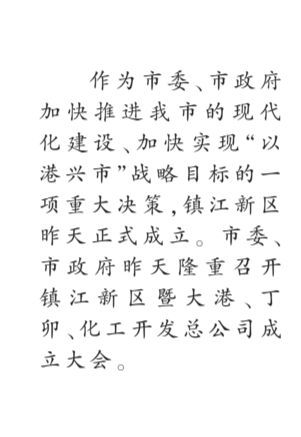 作为市委、市政府
加快推进我市的现代
化建设、加快实现“以
港兴市”战略目标的一
项重大决策，镇江新区
昨天正式成立。市委、
市政府昨天隆重召开
镇江新区暨大港、丁
卯、化工开发总公司成
立大会。